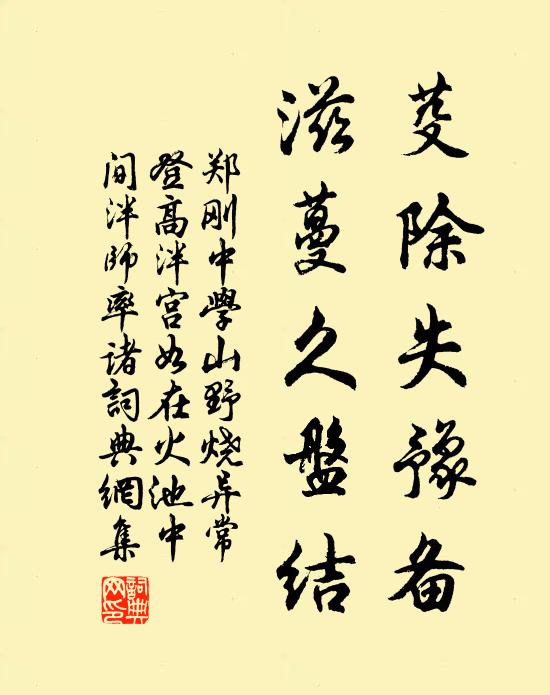 芟除失豫备
滋蔓久盤结
郑刚中學山野烧异常
登高泮宫如在火池中
间泮师率诸詞典網集
詞典
网印